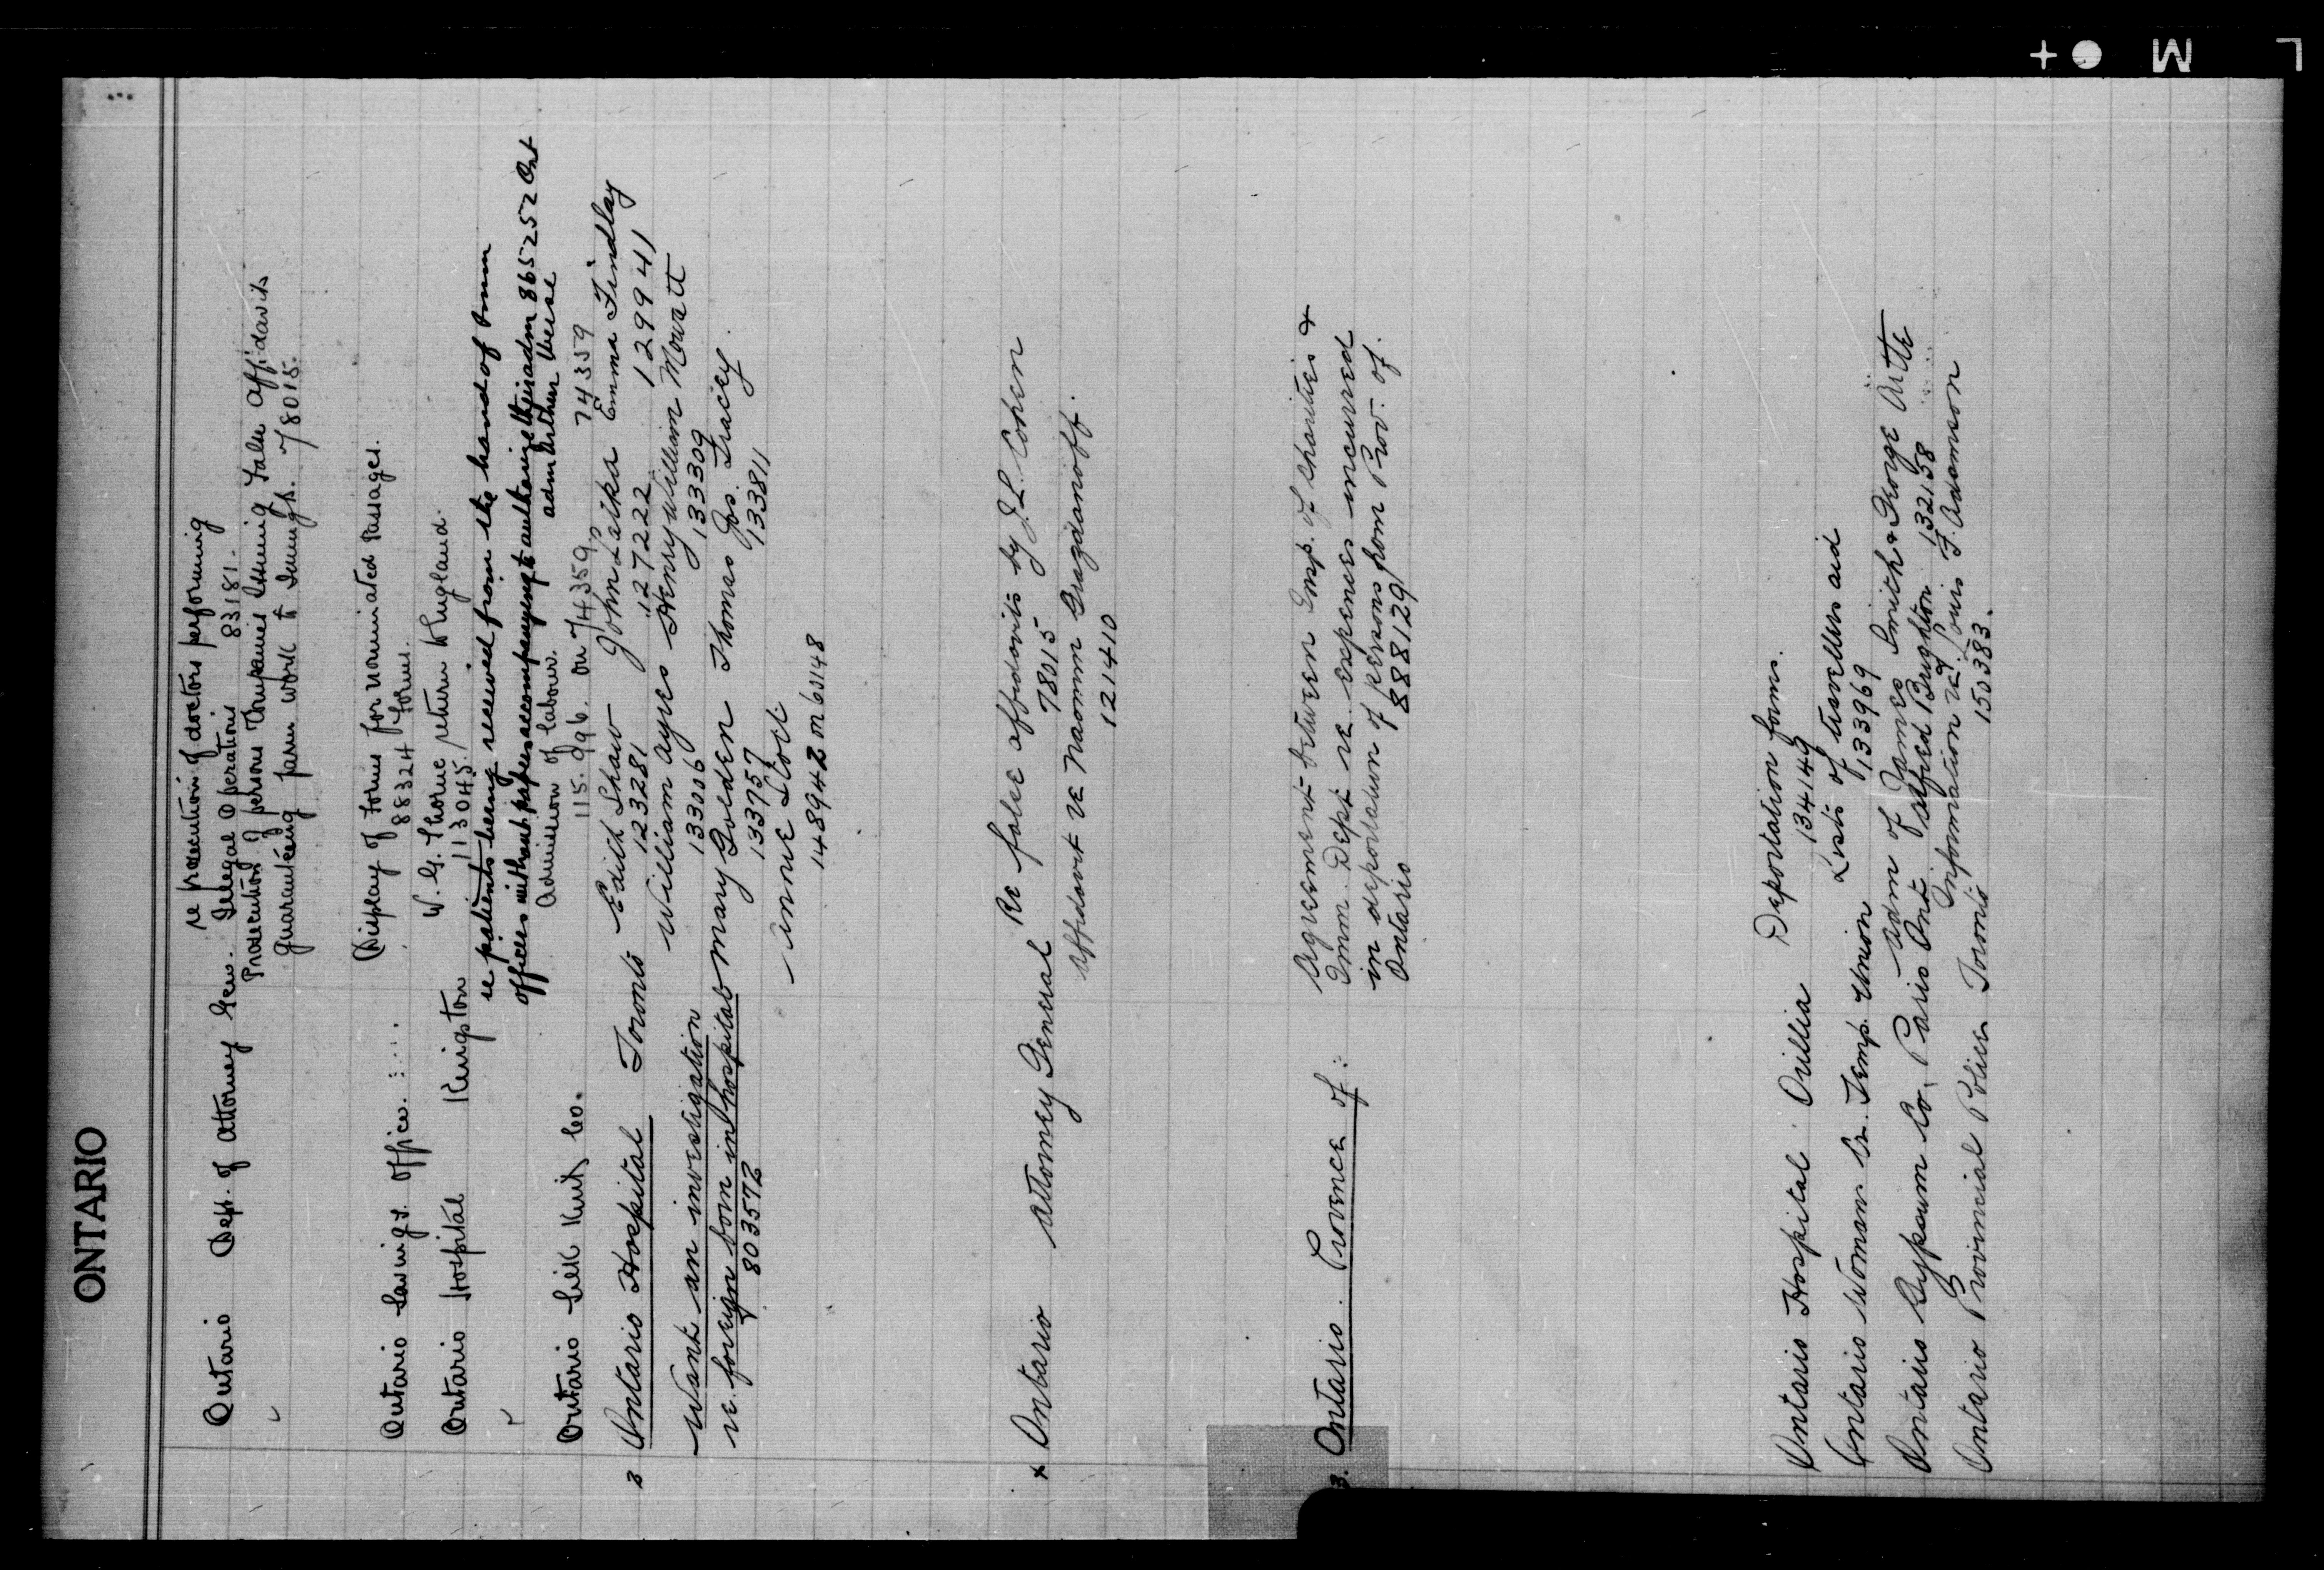 ONTARIO
re prosecution of doctors performing
Ontario Dept. of Attorney Gen. Illegal Operations 83181.
Prosecution of persons Companies Issuing False Affidavits
guaranteeing farm work to Immgts. 78015.
Ontario Savings Office. Display of forms for nominated Passages.
88324 forms.
Ontario Hospital Kingston W. G. Thorne return England.
113045.
re patients being received from the hands of Imm
officers without papers accompanying to authorize their adm 865252 Ont
Admission of labour. adm Arthur Weise
Ontario Silk Knit Co. 115.996. on 74359, 74359
3 Ontario Hospital Toronto Edith Shaw John Latka Emma Findlay
123281 127222 129941
Want an investigation William Ayres Henry William Mowatt
133006 133309
re. foreign born in hospitals Mary Golden Thomas Jos. Tracey.
803572 133757 133811
148942 on 60148
x Ontario Attorney General Re false affidavits by J.L. Cohen
78015
Affidavit re Naomm
121410
3. Ontario. Provence of: Agreement between Insp. of charities &
Imm. Dept re. expenses incurred
in deportation of persons from Prov. of.
Ontario 888129
Ontario Hospital Orillia Deportation forms.
134149
Ontario Woman Ch. Temp. Union Lists of travellers aid
133969
Ontario Gypsum Co, Paris Ont. Adm of James Smith & George
Alfred Brighton 132158
Ontario Provincial Police Toronto Information re Louis F. Adamson
150383.
L M +